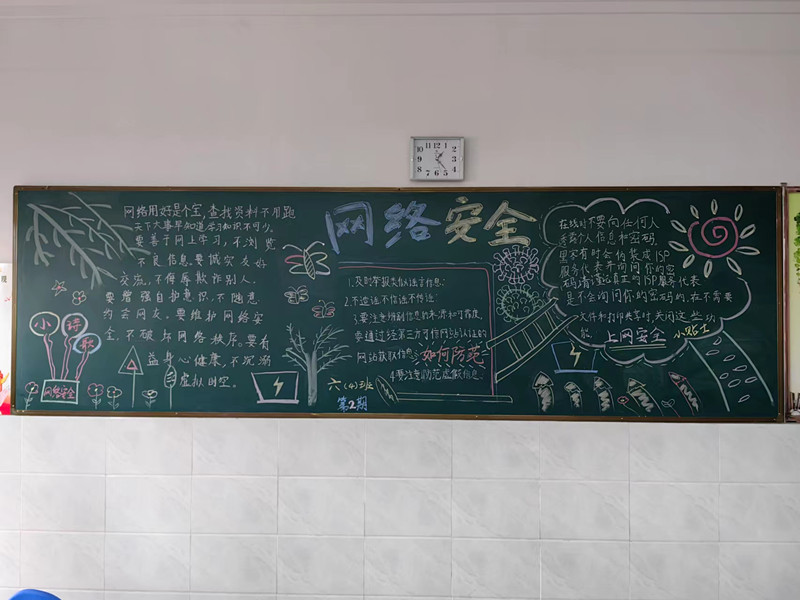 网络安全
网络用好是个宝,查找资料不用跑
天下大事早知道学习知识不可少。
要善于网上学习,不浏览
不良信息。要诚实友好
交流,不侮辱欺诈别人。
要增强自护意识,不随意
约会网友。要维护网络安
全,不破坏网络秩序。要有
益身心健康,不沉溺
虚拟时空。
小诗歌
网络安全
1.及时举报类似谣言信息。
2.不造谣不信谣不传谣。
3.要注意辨别信息的来源和可靠度,
要通过经第三方可信网站认证的
网站获取信息。
如何防范
4要注意防范虚假信息。
六(4)班
第2期
在线时不要向任何人
个人信息和密码。
里有时会伪装成ISP
服务代表并询问你的密
码。请谨记真正的ISP服务代表
是不会询问你的密码的。在不需要
文件和打印共享时,关闭这些功
能。
上网安全
小贴士